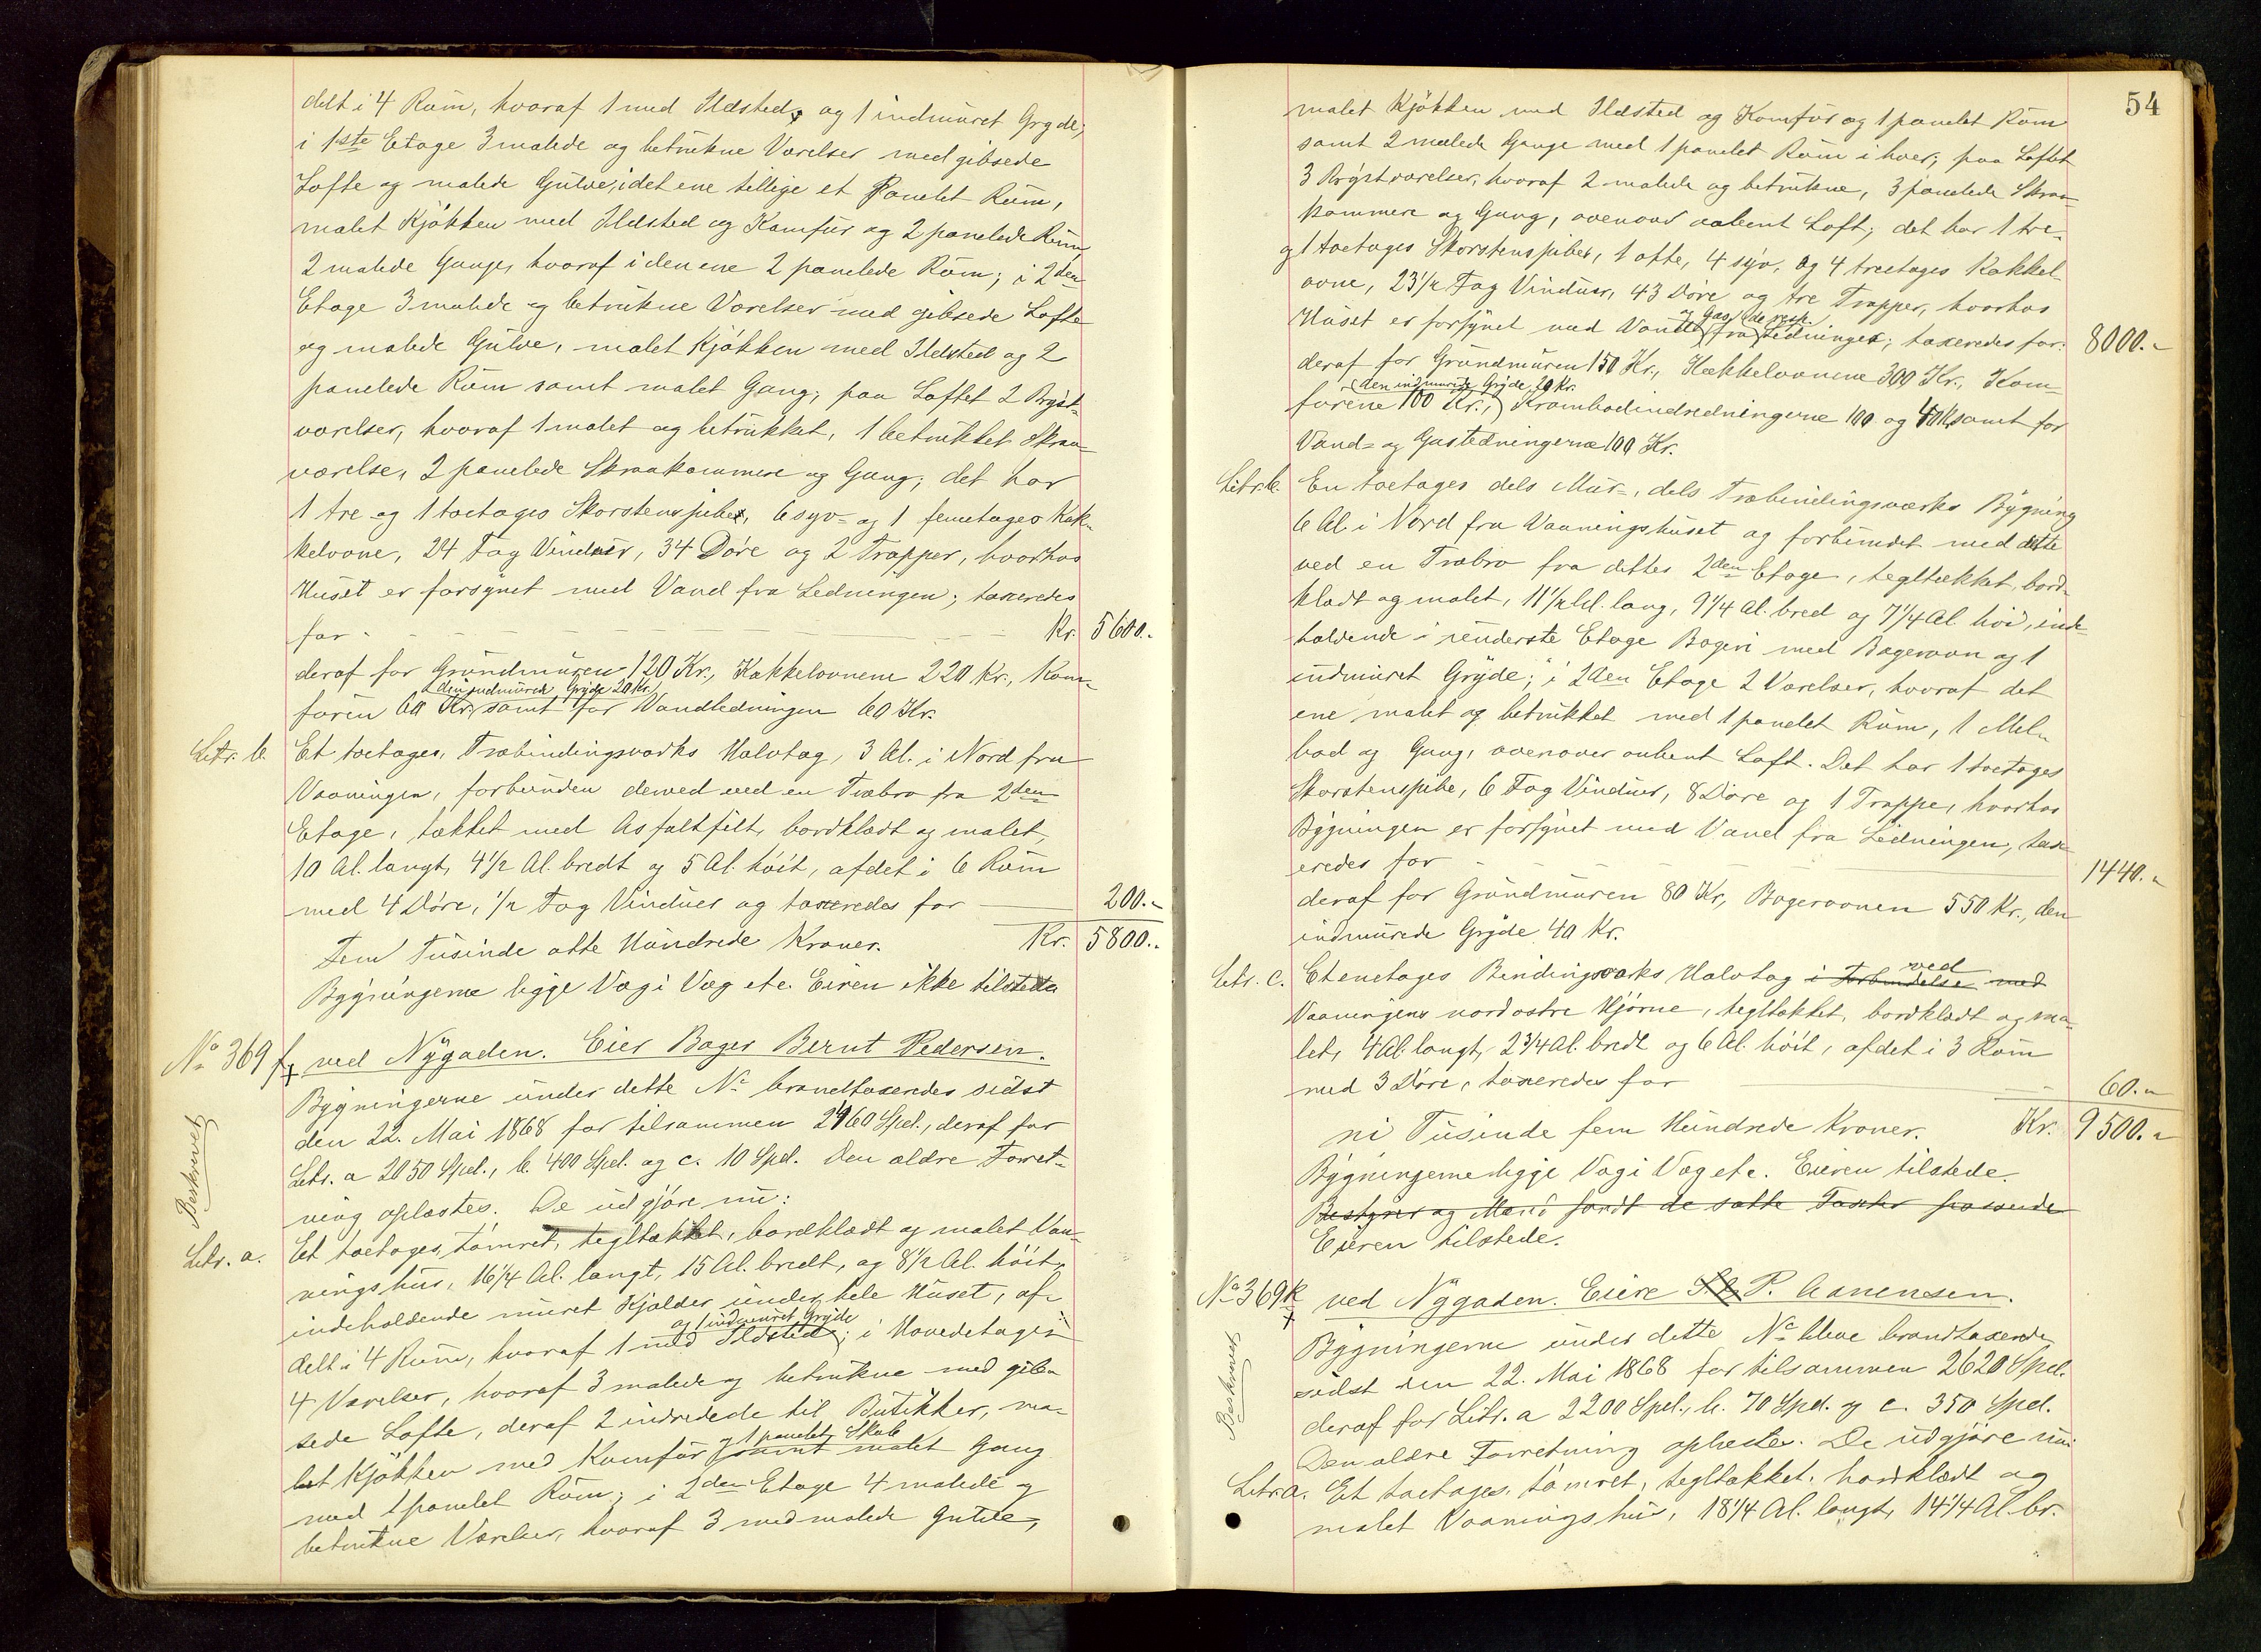 delt i 4 Rum, hvoraf 1 med Ildsted, og 1 indmuret Gryde;
i 1ste Etage 3 malede og betrukne Værelser med gibsede
Lofte og malede Gulve, i det ene tillige et Panelet Rum,
malet Kjøkken med Ildsted og Komfur og 2 panelede Rum
2 malede Gange, hvoraf i den ene 2 panelede Rum; i 2den
Etage 3 malede og betrukne Værelser med gibsede Lofte
og malede Gulve, malet Kjøkken med Ildsted og 2
panelede Rum samt malet Gang; paa Loftet 2 Bryst-
værelser, hvoraf 1 malet og betrukket, 1 betrukket Skraa-
værelse, 2 panelede Skraakammere og Gang; det har
1 tre og 1 toetages Skorstenspibe, 6 syv- og 1 femetages Kak-
kelovne, 24 Fag Vinduer, 34 Døre og 2 Trapper, hvorhos
Huset er forsynet med Vand fra Ledningen; taxeredes
for Kr. 5600.-
deraf for Grundmuren 120 Kr., Kakkelovnene 220 Kr., Kom-
den indmurede Gryde 20 Kr.
furen 60 Kr., samt for Vandledningen 60 Kr.
Litr. b. Et toetages, Træbindingsværks Halvtag, 3 Al. i Nord fra
Vaaningen, forbunden dermed ved en Træbro fra 2den
Etage, tækket med Asfaltfilt, bordklædt og malet,
10 Al. langt, 4 1/2 Al. bredt og 5 Al. høit, afdelt i 6 Rum
med 4 Døre, 1/2 Fag Vinduer og taxeredes for 200.-
Fem Tusinde otte Hundrede Kroner. Kr. 5800.-
Bygningerne ligge Væg i Væg etc. Eieren ikke tilstede
No 369 f ved Nygaden. Eier Bager Bernt Pedersen.
Bygningerne under dette No brandtaxeredes sidst
den 22. Mai 1868 for tilsammen 2460 Spd., deraf for
Beskrevet
Litr. a 2050 Spd., b. 400 Spd. og c. 10 Spd. Den ældre Forret-
ning oplæstes. De udgjøre nu:
Litr. a. Et toetages, tømret, tegltækket, bordklædt og malet Vaa-
ningshus, 16 1/4 Al. langt, 15 Al. bredt, og 8 1/2 Al. høit,
indeholdende muret Kjælder under hele Huset, af-
og 1 indmuret Gryde
delt i 4 Rum, hvoraf 1 med Ildsted; i Hovedetagen
4 Værelser, hvoraf 3 malede og betrukne med gib-
sede Lofte, deraf 2 indredede til Butikker, ma-
og 1 panelet Skab
let Kjøkken med Komfur samt malet Gang
med 1 panelet Rum; i 2den Etage 4 malede og
betrukne Værelser, hvoraf 3 med malede Gulve,
54
malet Kjøkken med Ildsted og Komfur og 1 panelet Rum
samt 2 malede Gange med 1 panelet Rum i hver; paa Loftet
3 Brystværelser, hvoraf 2 malede og betrukne, 3 panelede Skraa-
kammere og Gang, ovenover aabent Loft; det har 1 tre-
og 1 toetages Skorstenspibe, 1 otte, 4 syv, og 4 treetages Kakkel-
ovne, 23 1/2 Fag Vinduer, 43 Døre og tre Trapper, hvorhos
og Gas de resp.
Huset er forsynet med Vand fra Ledninger; taxeredes for: 8000.-
deraf for Grundmuren 150 Kr., Kakkelovnene 300 Kr., Kom-
den indmurede Gryde 20 Kr.
furene 100 Kr., Krambodindredningerne 100 og 40 Kr samt for
Vand- og Gasledningerne 100 Kr.
Litr. b. En toetages dels Mur-, dels Træbindingsværks Bygning
6 Al. i Nord fra Vaaningshuset og forbundet med dette
ved en Træbro fra dettes 2den Etage, tegltækket, bord-
klædt og malet, 11 1/2 Al. lang, 9 1/4 Al. bred og 7 1/4 Al høi, inde-
holdende i underste Etage Bageri med Bagerovn og 1
indmuret Gryde; i 2den Etage 2 Værelser, hvoraf det
ene malet og betrukket med 1 panelet Rum, 1 Mel-
bod og Gang, ovenover aabent Loft. Det har 1 toetages
Skorstenspibe, 6 Fag Vinduer, 8 Døre og 1 Trappe, hvorhos
Bygningen er forsynet med Vand fra Ledningen, tax-
eredes for 1440.-
deraf for Grundmuren 80 Kr, Bagerovnen 550 Kr., den
indmurede Gryde 40 Kr.
ved
Litr. c. Et enetages Bindingsværks Halvtag i Forbindelse med
Vaaningens nordostre Hjørne, tegltækket, bordklædt og ma-
let, 4 Al. langt, 2 3/4 Al. bredt og 6 Al. høit, afdelt i 3 Rum
med 3 Døre, taxeredes for 60.-
ni Tusinde fem Hundrede Kroner. Kr. 9500.-
Bygningerne ligge Væg i Væg etc. Eieren tilstede.
Bestyrer og Mænd fandt de satte Taxter passende
Eieren tilstede.
No 369 k ved Nygaden. Eiere P. Aanensen.
Bygningerne under dette No bleve brandtaxerede
Beskrevet
sidst den 22. Mai 1868 for tilsammen 2620 Spd.
deraf for Litr. a 2200 Spd., b. 70 Spd. og c. 350 Spd.
Den ældre Forretning oplæstes. De udgjøre nu:
Litr. a. Et toetages, tømret, tegltækket, bordklædt og
malet Vaaningshus, 18 1/4 Al. langt, 14 1/4 Al. br.